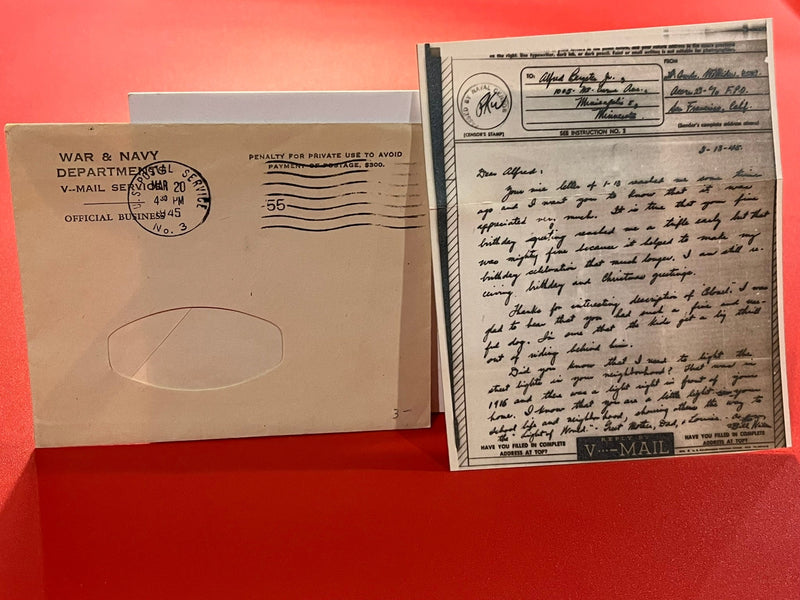 WAR & NAVY
DEPARTMENTS
V--MAIL SERVICE
OFFICIAL BUSINESS
U.S. POSTAL SERVICE
MAR 20
4 30 PM
1945
No. 3
PENALTY FOR PRIVATE USE TO AVOID
PAYMENT OF POSTAGE, $300.
55
3-
on the right. Use typewriter, dark ink, or dark pencil. Faint or small writing is not suitable for photographing.
TO:
Alfred Jr.,
Ave.,
Minneapolis 8,
Minnesota
FROM
San Francisco, Calif.
(Sender's complete address above)
BY NAVAL CENSOR
(CENSOR'S STAMP)
SEE INSTRUCTION NO. 2
3-13-45.
Dear Alfred:
Your nice letter of 1-13 reached me some time
ago and I want you to know that it was
appreciated very much. It is true that your fine
birthday greeting reached me a trifle early but that
was mighty fine because it helped to make my
birthday celebration that much longer. I am still re-
ceiving birthday and Christmas greetings.
Thanks for interesting description of I was
glad to hear that you had such a fine and use-
ful dog. I'm sure that the kids get a big thrill
out of riding behind him.
Did you know that I used to light the
street lights in your neighborhood? That was in
1916 and there was a light right in front of your
home. I know that you are a little light in your
school life and neighborhood, showing others the way to
the "Light of World". Greet Mother, Dad, & Lonnie.
HAVE YOU FILLED IN COMPLETE
ADDRESS AT TOP?
REPLY BY
V···—MAIL
HAVE YOU FILLED IN COMPLETE
ADDRESS AT TOP?